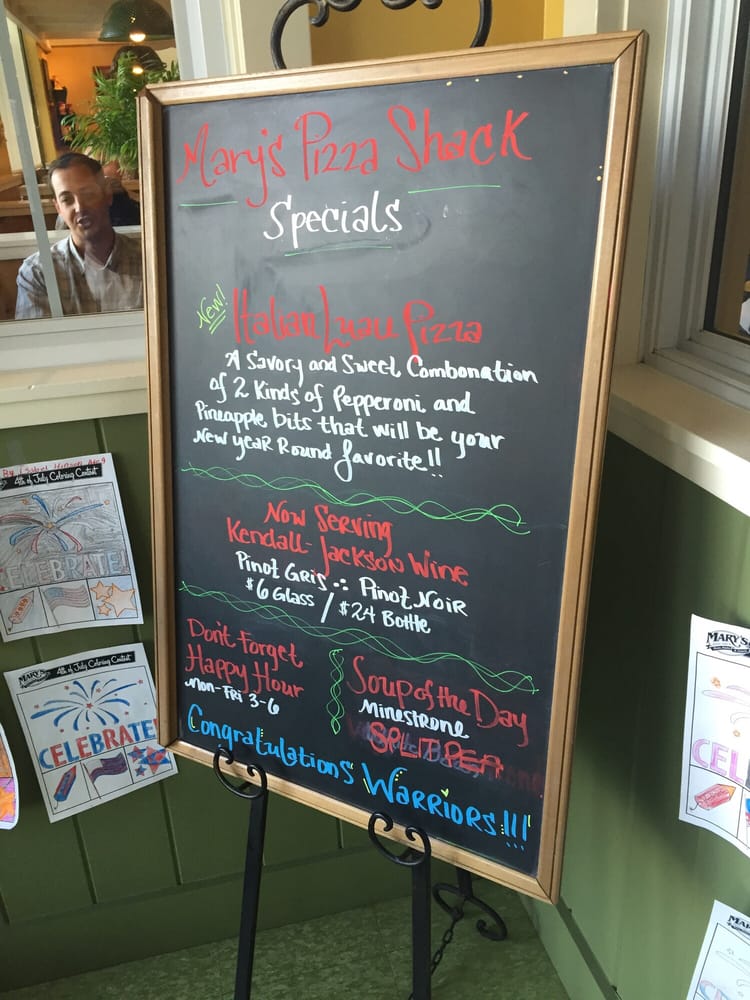 Mary's Pizza Shack
Specials
New!
Italian Luau Pizza
A Savory and Sweet Combonation
of 2 Kinds of Pepperoni and
Pineapple bits that will be your
New year Round favorite!!
Now Serving
Kendall-Jackson Wine
Pinot Gris Pinot Noir
$6 Glass / $24 Bottle
Don't Forget
Happy Hour
Mon-Fri 3-6
Soup of the Day
Minestrone
SPLIT PEA
Congratulations Warriors!!!
4th of July Coloring Contest
CELEBRATE
MARY'S
4th of July Coloring Contest
CELEBRATE
MARY'S
CEL
MARY'S